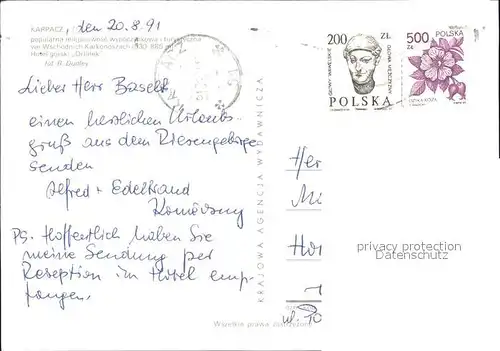 KARPACZ, den 20.8.91
popularna miejscowość wypoczynkowa i turystyczna
we Wschodnich Karkonoszach
Hotel górski „Orlinek"
fot. R.
Lieber Herr
einen herzlichen Urlaubs-
gruß aus dem Riesengebirge
senden
Alfred + Edeltraud
PS. Hoffentlich haben Sie
meine Sendung per
Reception im Hotel emp-
fangen.
KRAJOWA AGENCJA WYDAWNICZA
Wszelkie prawa zastrzeżone
200 ZŁ
GŁOWY WAWELSKIE
POLSKA
POLSKA
500
ZŁ
He
Mi
Ho
ul.
privacy protection
Datenschutz